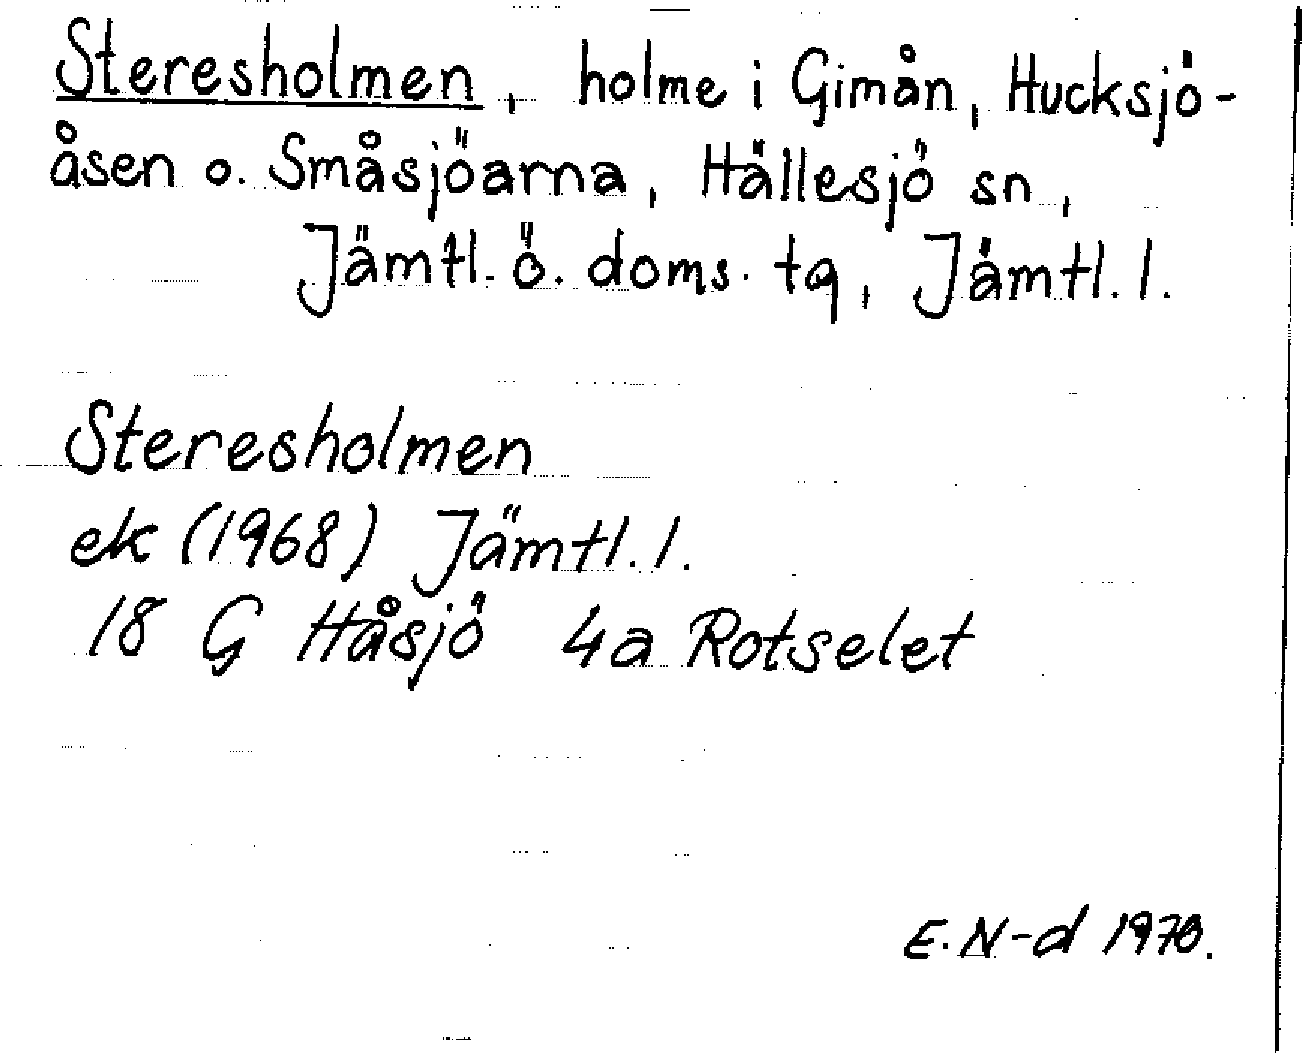 Steresholmen, holme i Gimån, Hucksjö-
åsen o. Småsjöarna, Hällesjö sn,
Jämtl. ö. doms. tg, Jämtl. l.
Steresholmen
ek (1968) Jämtl. l.
18 G Håsjö 4a Rotselet
E. N-d 1970.